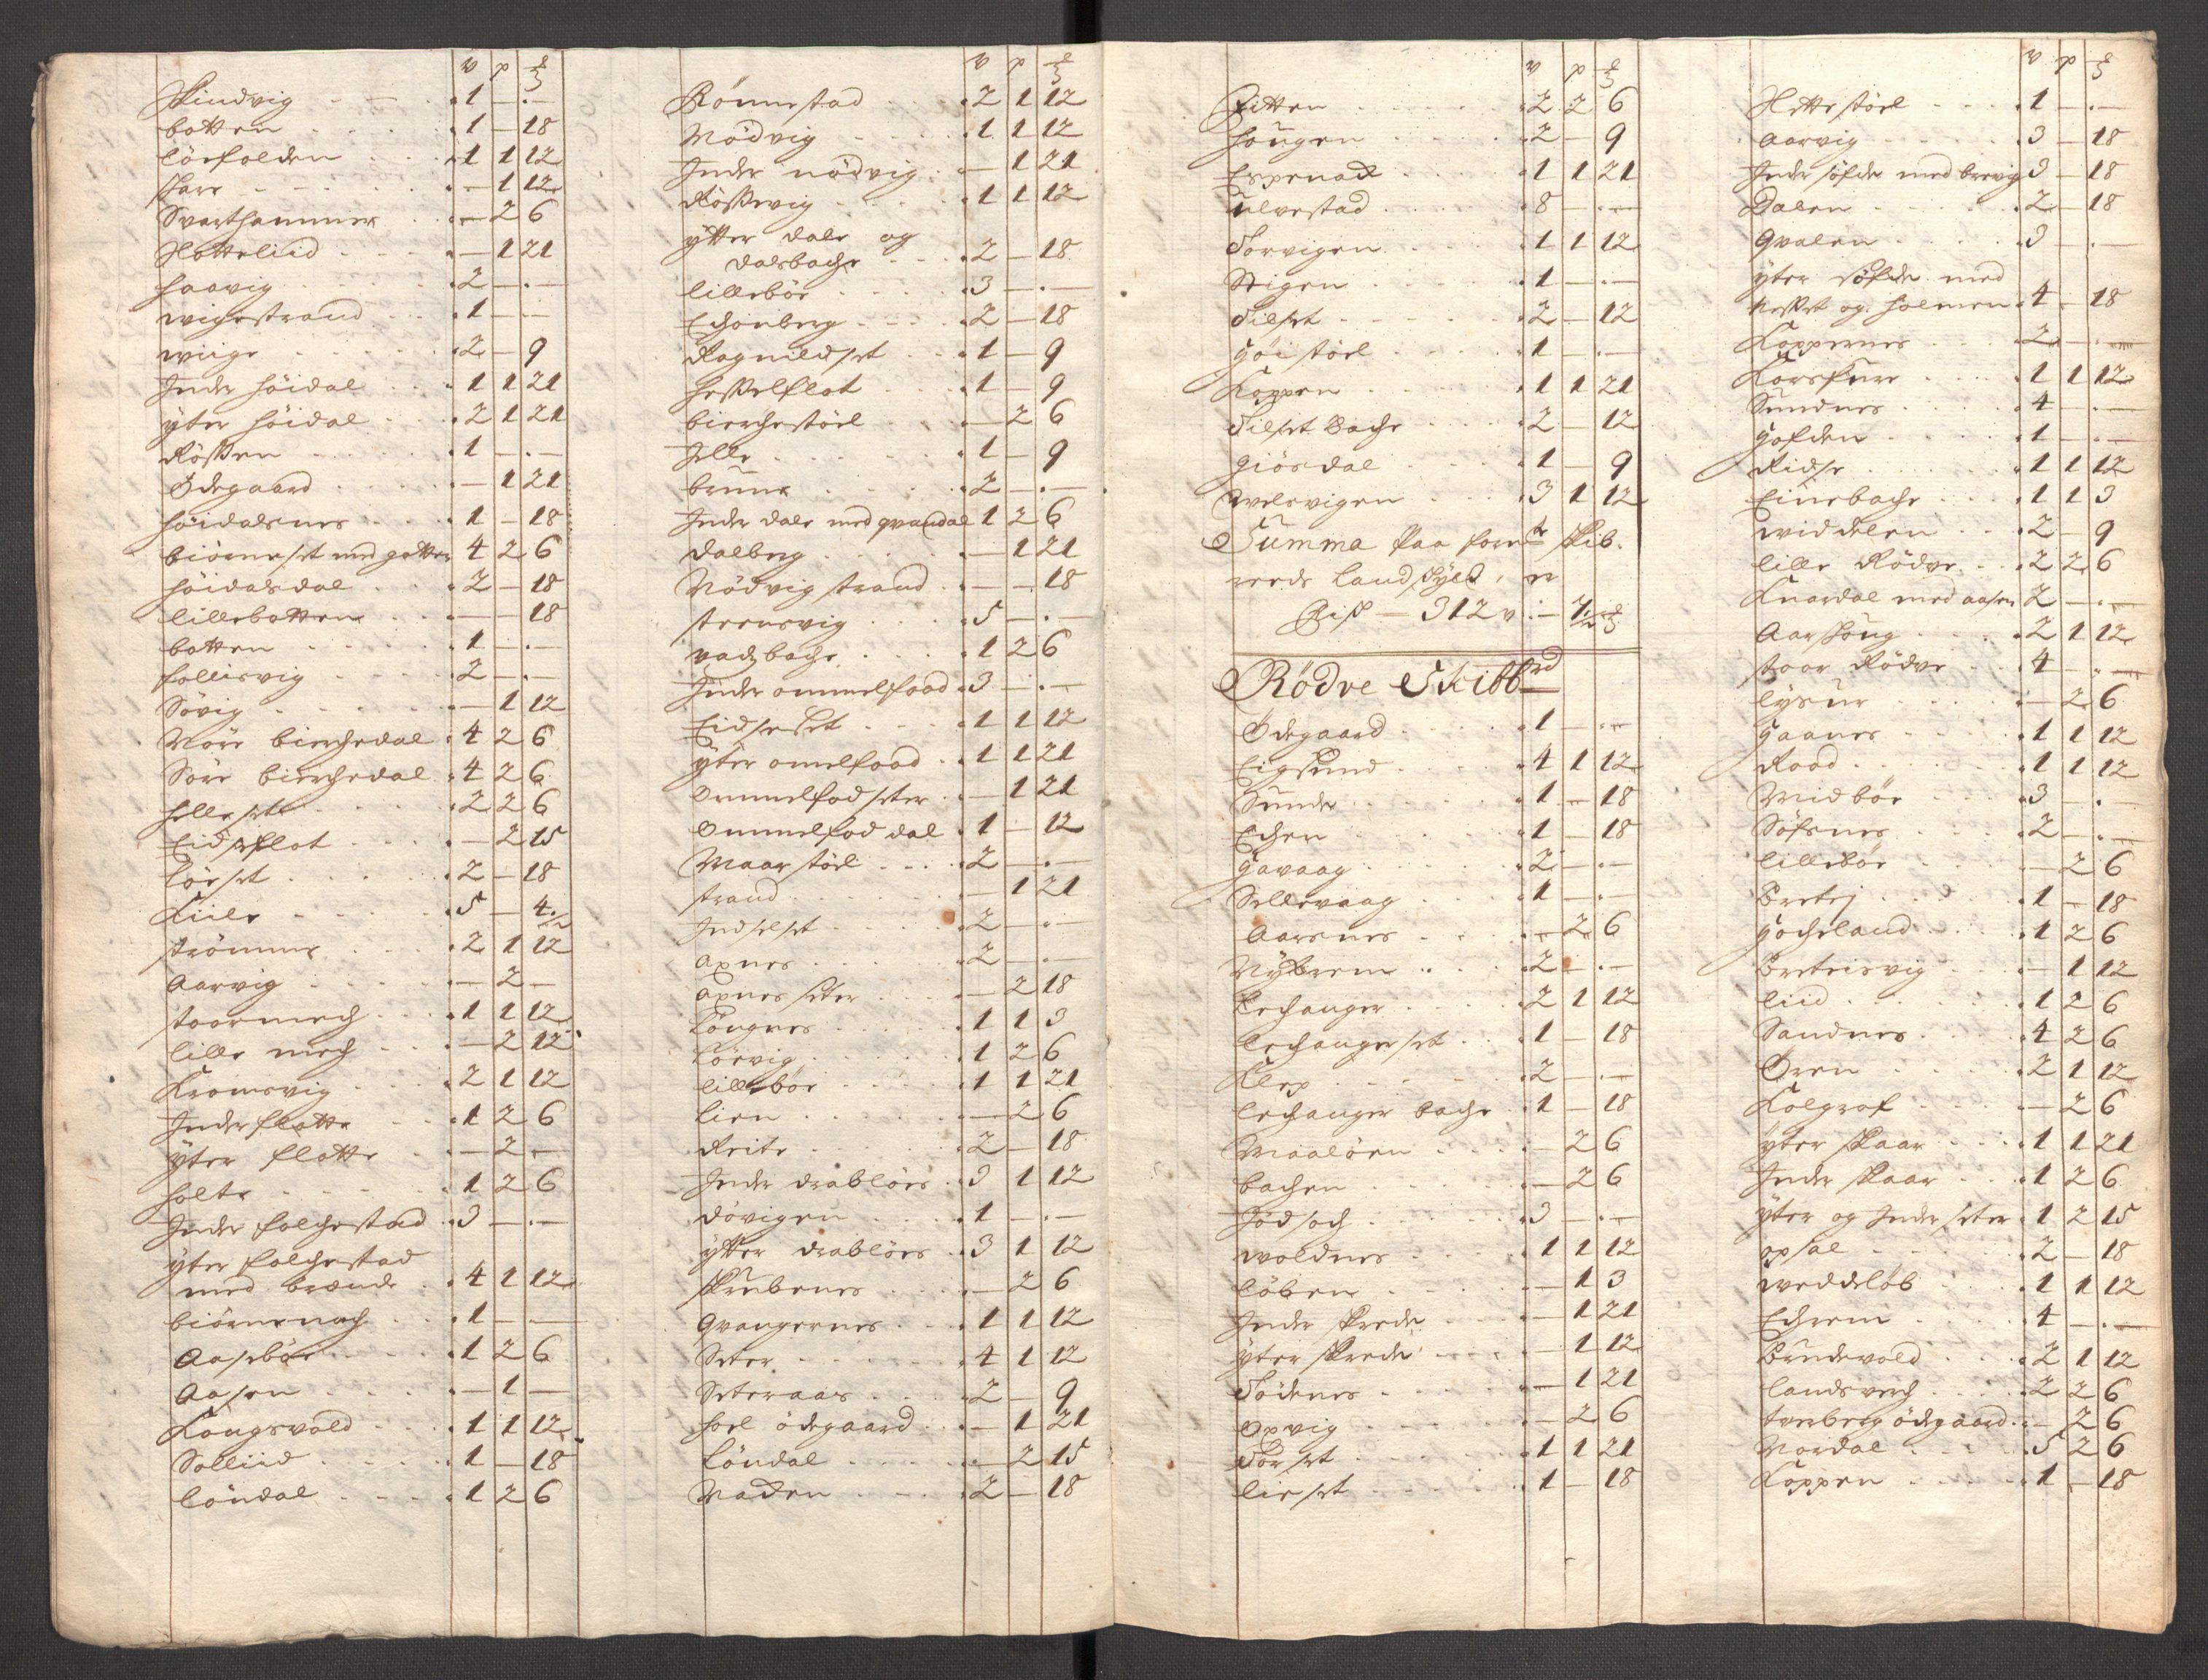 v p ℔
Skindvig 1 - -
botten 1 - 18
Lörfolden 1 1 12
Hare - 1 12
Svarthammer - 2 6
Hotteliid - 1 21
Haavig 2 - -
wigestrand 1 - -
wiige 2 - 9
Inder höidal 1 1 21
yter höidal 2 1 21
Rösten 1 - -
Ödegaard - 1 21
höidalsnes 1 - 18
biörneset med gotten 4 2 6
höidalsdal 2 - 18
lillebotten - - 18
botten 1 - -
follisvig 2 - -
Sövig - 1 12
Nörr bierchedal 4 2 6
Sörr bierchedal 4 2 6
Helleset 2 2 6
Eidseflot - 2 15
Lörset 2 - 18
Kiile 5 - 4½
strömme 2 1 12
Aarvig - 2 -
stoormech 1 1 12
lille mech - 2 12
Kromsvig 2 1 12
Inder flotte 1 2 6
yter flotte - 2 -
holte 1 2 6
Inder folchestad 3 - -
yter folchestad
med brende 4 1 12
biörnenach 1 - -
Aaseböe 1 2 6
Aasen - 1 -
Kongsvold 1 1 12
Solliid 1 - 18
löndal 1 2 6
v p ℔
Rönnestad 2 1 12
Nödvig 1 1 12
Inder nödvig - 1 21
Rössevig 1 1 12
ytter dale og
dalsbache 2 - 18
lillebör 3 - -
Echonberg 2 - 18
Ragnildset 1 - 9
hesselflot 1 - 9
bierchestöel - 2 6
Jelle 1 - 9
brune 2 - -
Inder dale med qvandal 1 2 6
dalberg - 1 21
Nödvig strand - - 18
steensvig 5 - -
vadzbache 1 2 6
Inder ommelfood 3 - -
Eidseset 1 1 12
yter omelfood 1 1 21
Ommelfodseter - 1 21
Ommelfod dal 1 - 12
Maarstöel 2 - -
strand - 1 21
Indselset 2 - -
axnes 2 - -
axnes seter - 2 18
Löngnes 1 1 3
Lörvig 1 2 6
lillebör 1 1 21
lien - 2 6
Reite 2 - 18
Inder drablörs 3 1 12
dövigen 1 - -
ytter drablörs 3 1 12
skrubenes - 2 6
Qvangernes 1 1 12
Seter 4 1 12
Seteraas 2 - 9
hoel ödegaard - 1 21
Löndal - 2 15
Naden 2 - 18
v p ℔
Fitten 2 2 6
hougen 2 - 9
Espenack 1 1 21
ulvestad 8 - -
Torvigen 1 1 12
Stigen 1 - -
Silset 2 - 12
göistöel 1 - -
Koppen 1 1 21
Silset Bache 2 - 12
giörsdal 1 - 9
welsvigen 3 1 12
Summa paa forne skib.
reede Landskyld, er
Fisk - 312 v - 7½ ℔
Rödve Skibbrd
Ödegaard 1 - -
Eigsund 4 1 12
Sunde 1 - 18
Echen 1 - 18
gavaag 2 - -
Sellevaag 1 - -
Aarsnes - 2 6
Nybrem 2 - -
Lechanger 2 1 12
lechangerset 1 - 18
Klep 2 - -
lechanger bache 1 - 18
Maalöen - 2 6
bachen - 2 6
Hödsoch 3 - -
woldnes 1 1 12
Löben - 1 3
Inder skrede - 1 21
yter skrede - 1 12
Södenes - 1 21
Opvig - 2 6
Torset 1 1 21
lieset 1 - 18
v p ℔
Hettestöel 1 - -
Aarvig 3 - 18
Inder söfde med brevig 3 - 18
Dalen 2 - 18
Qvalen 3 - -
yter söfde med
nesset og holmen 4 - 18
Koppernes 2 - -
Korsfure 1 1 12
Sundnes 4 - -
gofden 1 - -
Ridse 1 1 12
Einebache 1 1 3
widdelen 2 - 9
lille Rödve 2 2 6
Knardal med aasen 2 - -
Aarskoug 2 1 12
stoor Rödve 4 - -
lysur - 2 6
gaanes 1 1 12
Raad 1 1 12
Midböe 3 - -
Söfsnes 2 - -
lilleböe - 2 6
Brotej 1 - 18
gocheland 1 2 6
Brotrisvig - 1 12
liid 1 2 6
Sandnes 4 2 6
Ören 2 1 12
Kolgrof - 2 6
yter skaar 1 1 21
Inder skaar 1 2 6
yter og Inder seter 1 2 15
opsal 2 - 18
weddelöb 1 1 12
Echrem 4 - -
Brudevold 2 1 12
landsverch 2 2 6
tverberg ödegaard - 2 6
Nordal 5 2 6
Koppen 1 - 18